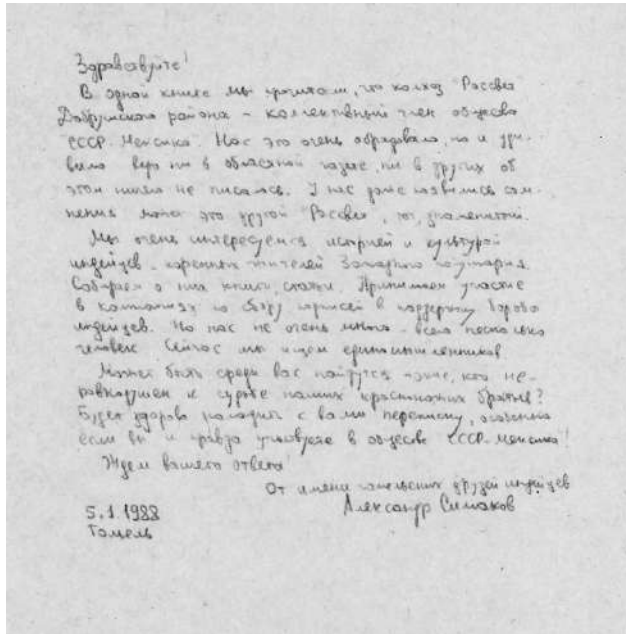 Здравствуйте!
В одной книге мы прочитали, что колхоз "Рассвет"
Добрушского района - коллективный член общества
"СССР-Мексика". Нас это очень обрадовало, но и уди-
вило. Ведь ни в областной газете, ни в других об
этом ничего не писалось. У нас даже появились сом-
нения, может это другой "Рассвет", тот, знаменитый.
Мы очень интересуемся историей и культурой
индейцев - коренных жителей Западного полушария.
Собираем о них книги, статьи. Принимаем участие
в кампаниях по сбору подписей в поддержку борьбы
индейцев. Но нас не очень много - всего несколько
человек. Сейчас мы ищем единомышленников.
Может быть среди вас найдутся такие, кто не-
равнодушен к судьбе наших краснокожих братьев?
Будет здорово наладить с вами переписку, особенно
если вы и правда участвуете в обществе "СССР-Мексика"!
Ждём вашего ответа!
От имени гомельских друзей индейцев
Александр Симаков
5.1.1988
Гомель